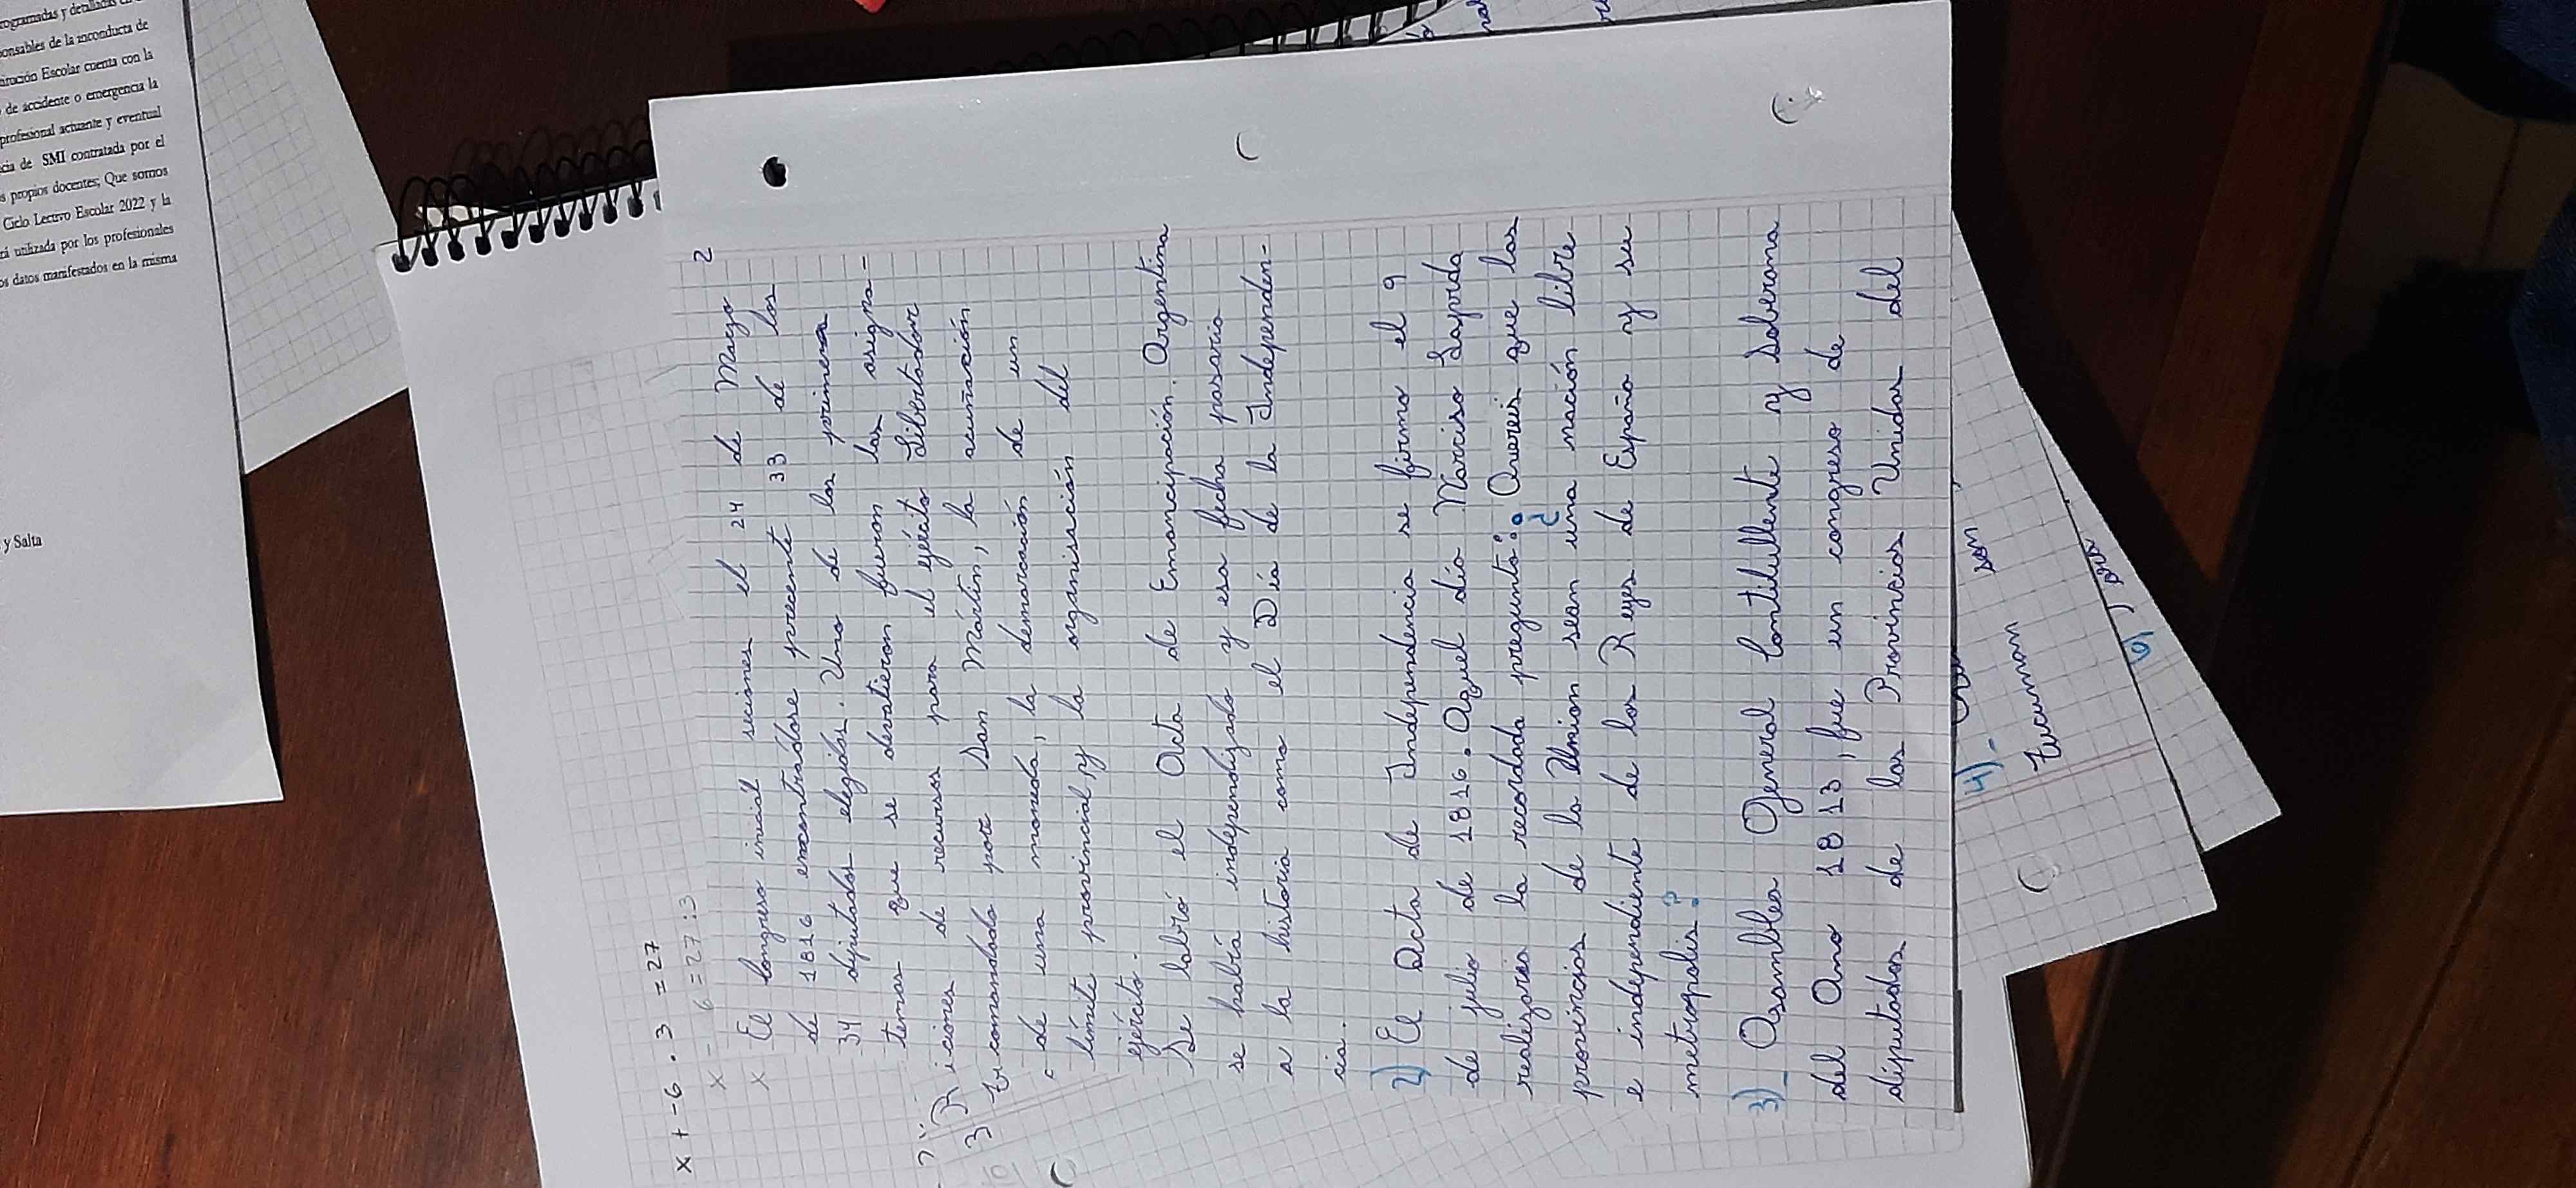 2
El Congreso inicial seciones el 24 de Marzo
de 1816 encontradore prececente 33 de los
34 dijutados elegidos. Uno de los primeros
temas que se devatieron fueron las asigna-
ciones de recursos para el ejército Libertador
comandado por San Martín, la acuñación
de una moneda, la demarcación de un
límite provincial, y la organisación del
ejército.
Se labró el Acta de Emancipación. Argentina
se habría independizado y esa fecha pasaría
a la historia como el Día de la Independen-
cia.
2) El Acta de Independencia se firmo el 9
de julio de 1816. Aquel día Narciso Laprida
realizaria la recordada pregunta: ¿ Quereis que las
provincias de la Union sean una nación libre
e independiente de los Reyes de España y su
metropolis?
3)_ Asamblea General Contitullente y Soberana
del Ano 1813, fue un congreso de
diputados de las Provincias Unidas del
x + -6 . 3 = 27
x - 6 = 27 : 3
x
4)_
son
tucuman
5)
rogramadas y detalladas
onsables de la inconducta de
titución Escolar cuenta con la
de accidente o emergencia la
profesional actuante y eventual
cia de SMI contratada por el
s propios docentes; Que somos
Ciclo Lectivo Escolar 2022 y la
rá utilizada por los profesionales
os datos manifestados en la misma
y Salta